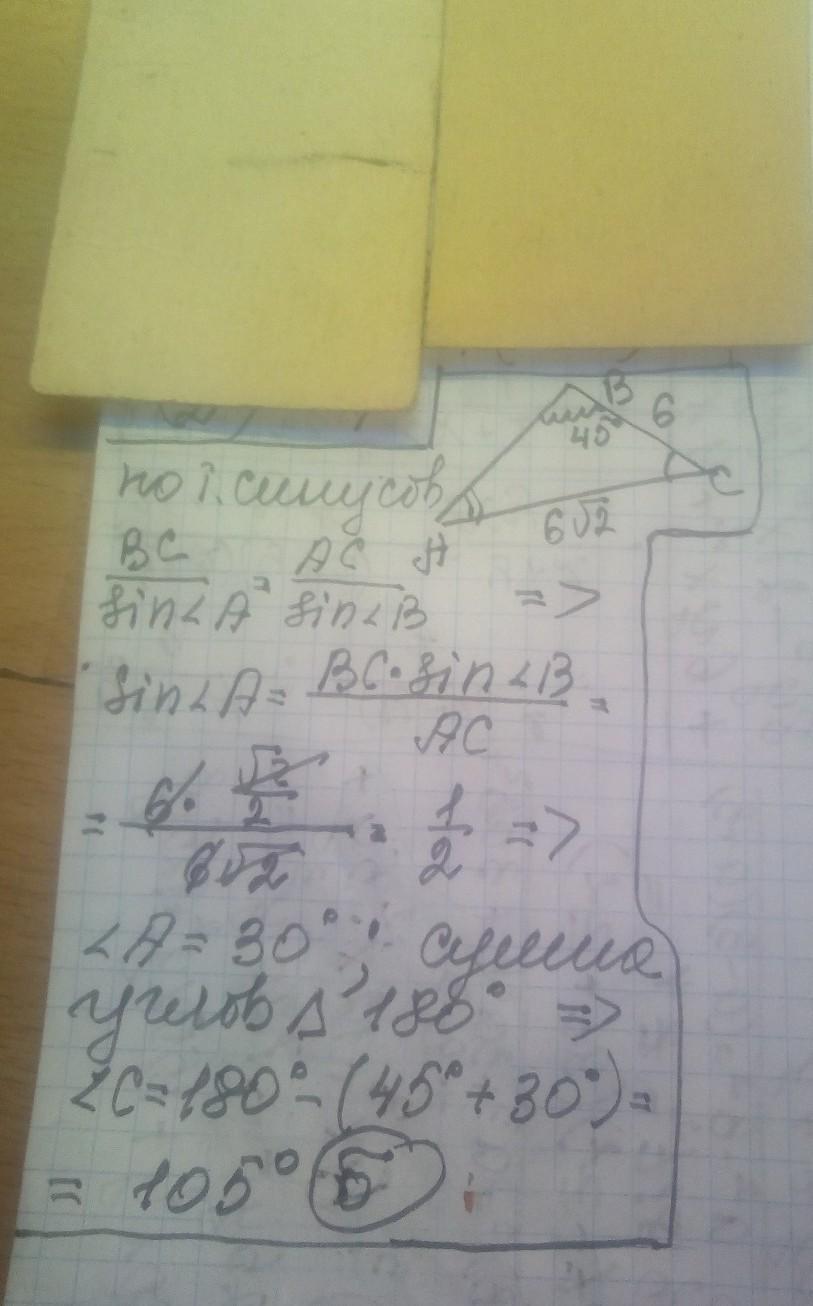 B 6
45
C
по т. синусов
6√2
A
BC/sin∠A = AC/sin∠B =>
sin∠A = BC·sin∠B/AC =
= 6·√2/2/6√2 = 1/2 =>
∠A = 30°; сумма
углов Δ 180° =>
∠C = 180° - (45° + 30°) =
= 105° Б